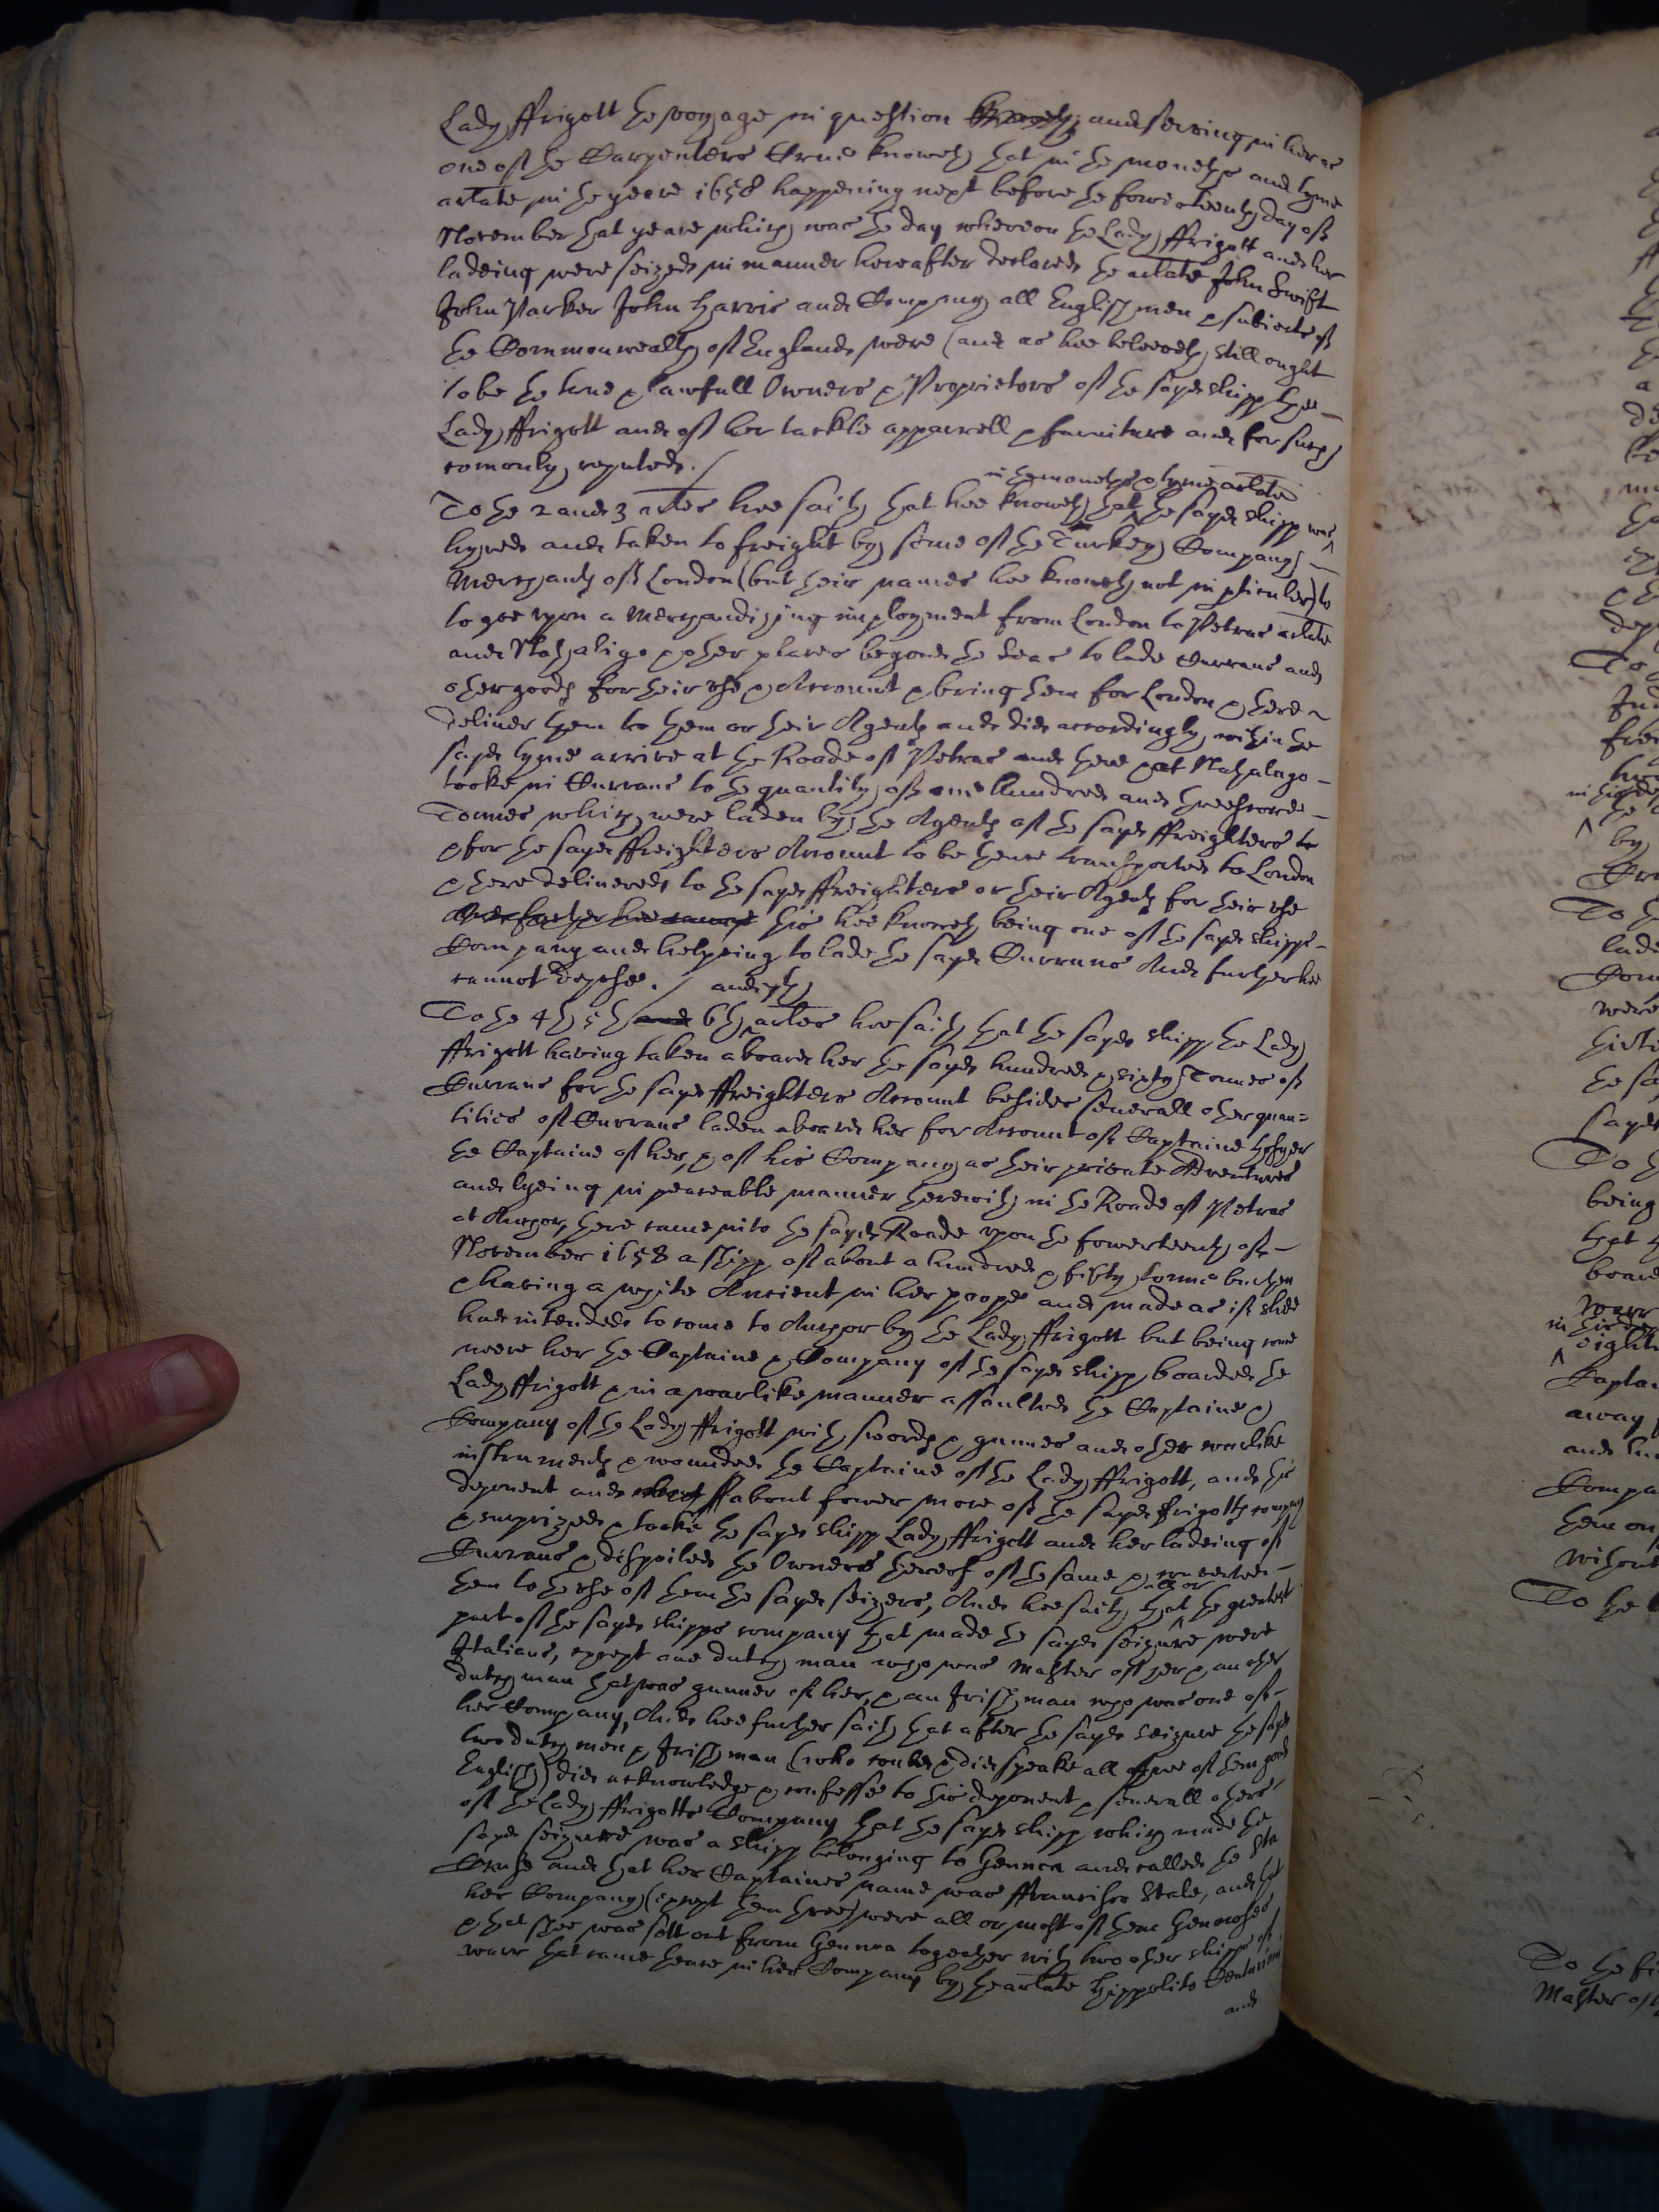 Lady ffrigott the voyage in question and serving in her as
one of the Carpenters Crue knoweth that in the moneths and tyme
arlate in the yeare 1658 happening next before the fowerteenth day of
November that yeare which was the day whereon the Lady ffrigott and her
ladeing were seized in manner hereafter declared the arlate John Swift
John Parker John Harris and Company all English men & subiects of
the Commonwealth of England were (and as hee beleeveth still ought
to be the true & lawfull Owners & Proprietors of the sayd shipp the
Lady ffrigott and of her tackle apparrell & furniture and for such
comonly reputed./
in the moneths & tyme arlate
To the 2 and 3 arles hee saith that hee knoweth that the sayd shipp was
hyred and taken to freight by some of the Turkey Company
Merchants of London (but their names hee knoweth not in pticuler) to
to goe upon a Merchandizing imployment from London to Petras arlate
and Nathaligo & other places beyond the Seas to lade Currans and
other goods for their use & Account & bring them for London & there
deliver them to them or their Agents and did accordingly within the
sayd tyme arrive at the Roade of Petras and there & at Nathalago
tooke in Currans to the quantity of one hundred and threescore
Tonnes which were laden by the Agents of the sayd ffreighters to
& for the sayd ffreighters Account to be thence transported to London
& there delivered to the sayd ffreighters or their Agents for their use
And further hee cannot this hee knoweth being one of the sayd shipps
Company and helpeing to lade the sayd Currans And further hee
cannot depose./ and 7th
To the 4th 5th and 6th arles hee saith that the sayd shipp the Lady
ffrigott having taken aboard her the sayd hundred & sixty Tonnes of
Currans for the sayd ffreighters Account besides severall other quan=
tities of Currans laden aboard her for Account of Captaine
the Captaine of her, & of his Company as their private Adventures
and lyeing in peaceable manner therewith in the Roade of Petras
at Anchor, there came into the sayd Roade upon the fowerteenth of
November 1658 a shipp of about a hundred & fifty tonnes burthen
& having a white Ancient in her poope and made as if shee
had intended to come to Anchor by the Lady ffrigott but being come
neere her the Captaine & Company of the sayd shipp boarded the
Lady ffrigott & in a warlike manner assaulted the Captaine &
Company of the Lady ffrigott with swords & gunnes and other warlike
instruments & wounded the Captaine of the Lady ffrigott, and this
deponent and about fower more of the sayd ffrigotts company
& surprized & tooke the sayd shipp Lady ffrigott and her ladeing of
Currans & dispoiled the Owners thereof of the same & converted
all or
them to the use of them the sayd seizers, And hee saith that the greatest
part of the sayd shipps company that made the sayd seizure were
Italians, except one dutch man who was Master of her & another
dutch man that was gunner of her, & an Irish man who was one of
her Company, And hee further saith that after the sayd seizure the sayd
two dutch men & Irish man (who could & did speake all three of them good
English) did acknowledge & confesse to this deponent & severall others
of the Lady ffrigotts Company that the sayd shipp which made the
sayd seizure was a shipp belonging to Gennoa and called the Sta
Cruse and that her Captaines name was ffrancisco Stale, and that
her Company (except them three) were all or most of them Genoeses
& that shee was sett out from Gennoa together with two other shipps of
warr that came thence in her Company by the arlate Hippolito
and